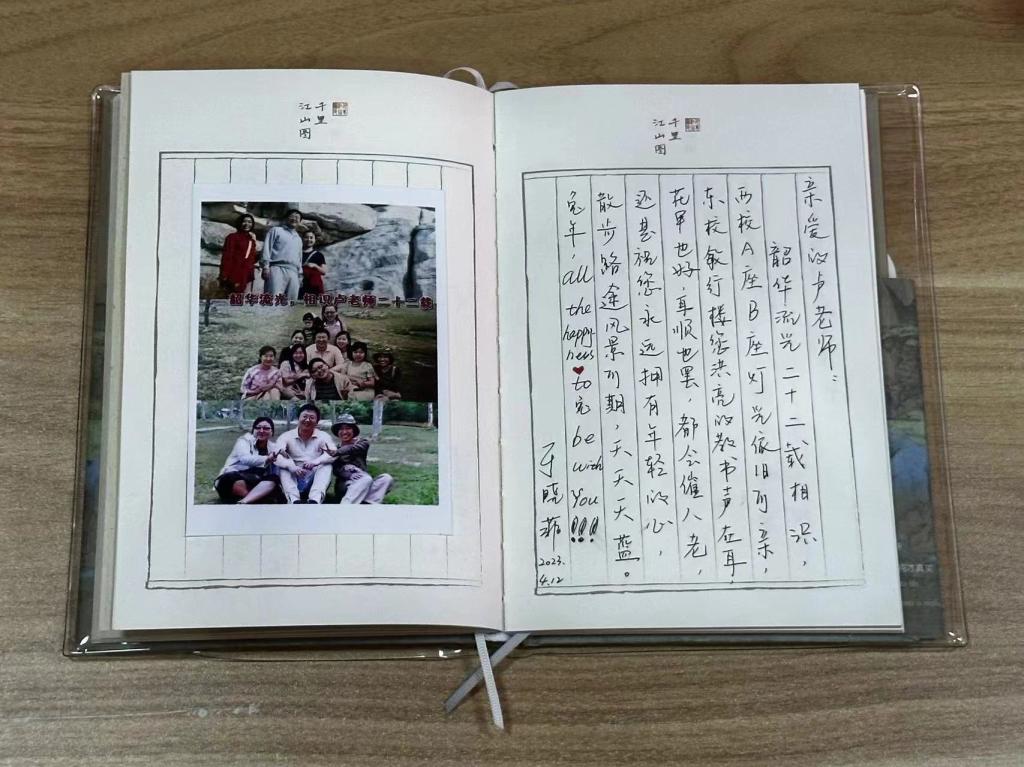 千里
江山图
韶华流光，相识卢老师二十二载
千里
江山图
亲爱的卢老师：
韶华流光二十二载相识，
西校A座B座灯光依旧可亲，
东校敏行楼您洪亮的教书声在耳，
花甲也好，耳顺也罢，都会催人老，
还是祝您永远拥有年轻的心，
散步路途风景可期，天天天蓝。
兔年，all the happyness ♥ to 兔 be with You!!!
于晓菲
2023.
4.12